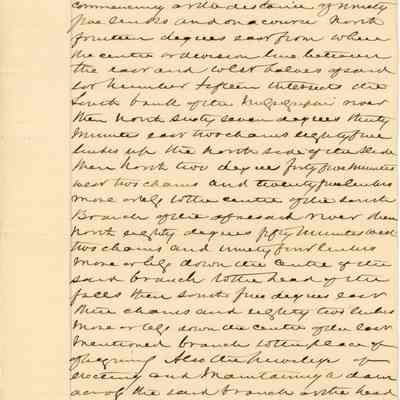 commencing at the distance of ninety
five links and on a course North
fourteen degrees east from where
the centre or division line between
the east and West halves of said
lot number fifteen intersects the
South bank of the river
then North Sixty seven degrees thirty
Minutes east two chains eighty five
links up the North side of the Slide
then North two degrees forty five Minutes
west two chains and twenty five links
more or less to the centre of the South
Branch of the aforesaid river then
north eighty degrees fifty Minutes west
two chains and ninety four links
More or less down the centre of the
said branch to the head of the
falls then South five degrees east
three chains and eighty two links
More or less down the centre of the last
Mentioned branch to the place of
beginning Also the privilege of
erecting and Maintaining a dam
across the said branch at the head